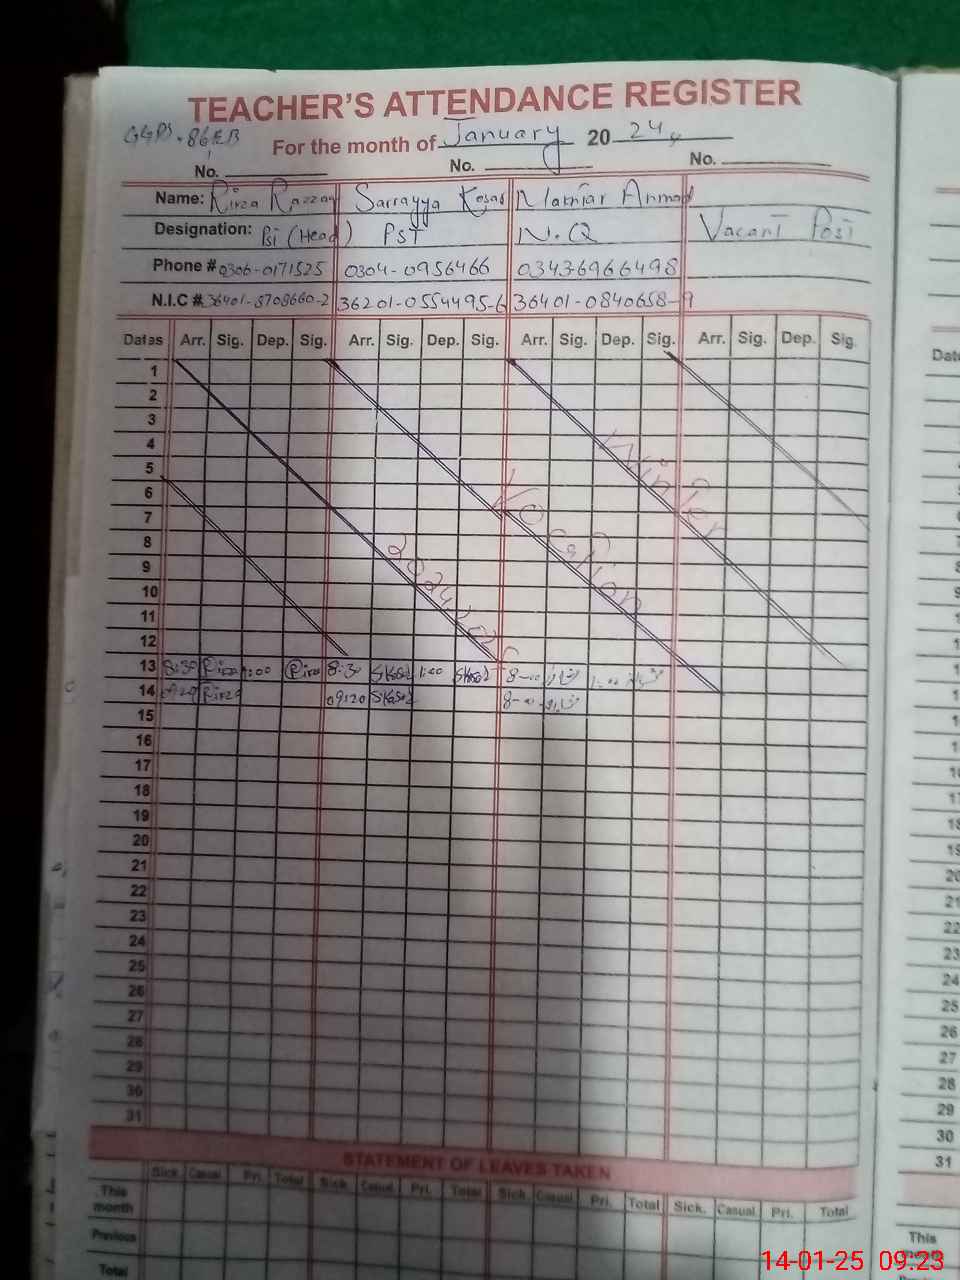 TEACHER'S ATTENDANCE REGISTER
GGPS. 86EB
For the month of January 2024
No. No. No.
Name: Rirza Razzaq Sarrayya Kosar Ahmad
Designation: (Head) PST N.Q Vacant Post
Phone # 0306-0171525 0304-0956466 03436966498
N.I.C #. 36401-8708660-2 36201-0554495-6 36401-0840658-9
Dates Arr. Sig. Dep. Sig. Arr. Sig. Dep. Sig. Arr. Sig. Dep. Sig. Arr. Sig. Dep. Sig.
1
2
3
4
5
6
7
8
9
10
11
12
Winter
Vocation
13 8:30 Rirza 1:00 Rirza 8:30 1:00 8-00 1-00
14 Rirza 09:20 8-00
15
16
17
18
19
20
21
22
23
24
25
26
27
28
29
30
31
STATEMENT OF LEAVES TAKEN
Sick. Casual Pri. Total Sick. Casual. Pri. Total Sick. Casual. Pri. Total Sick. Casual. Pri. Total
This month
Previous
Total
Date
23
24
25
26
27
28
29
30
31
This
14-01-25 09:23